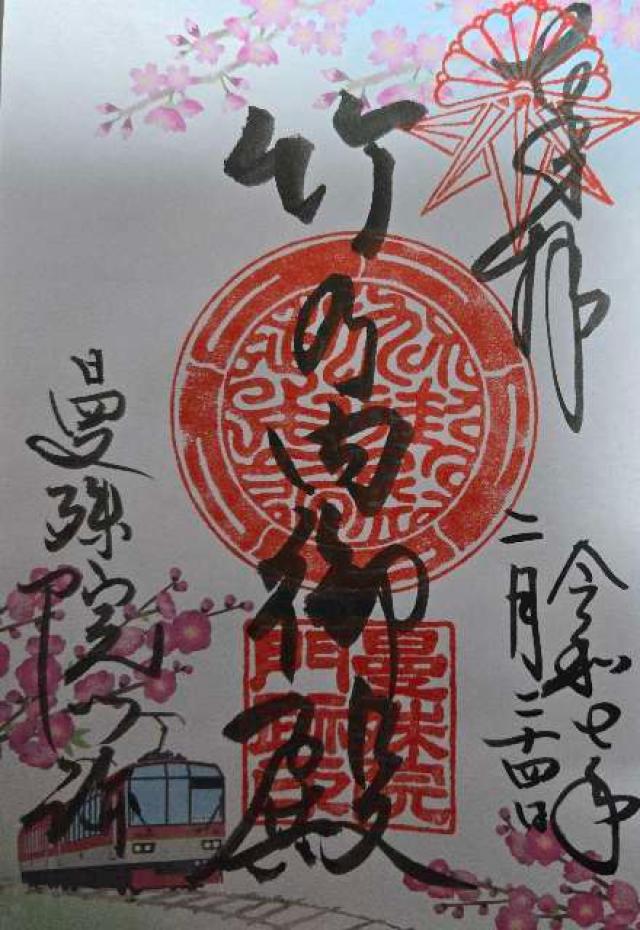 奉拝
令和七年
二月二十四日
竹の内御殿
曼殊院門跡
曼殊院
門跡之印